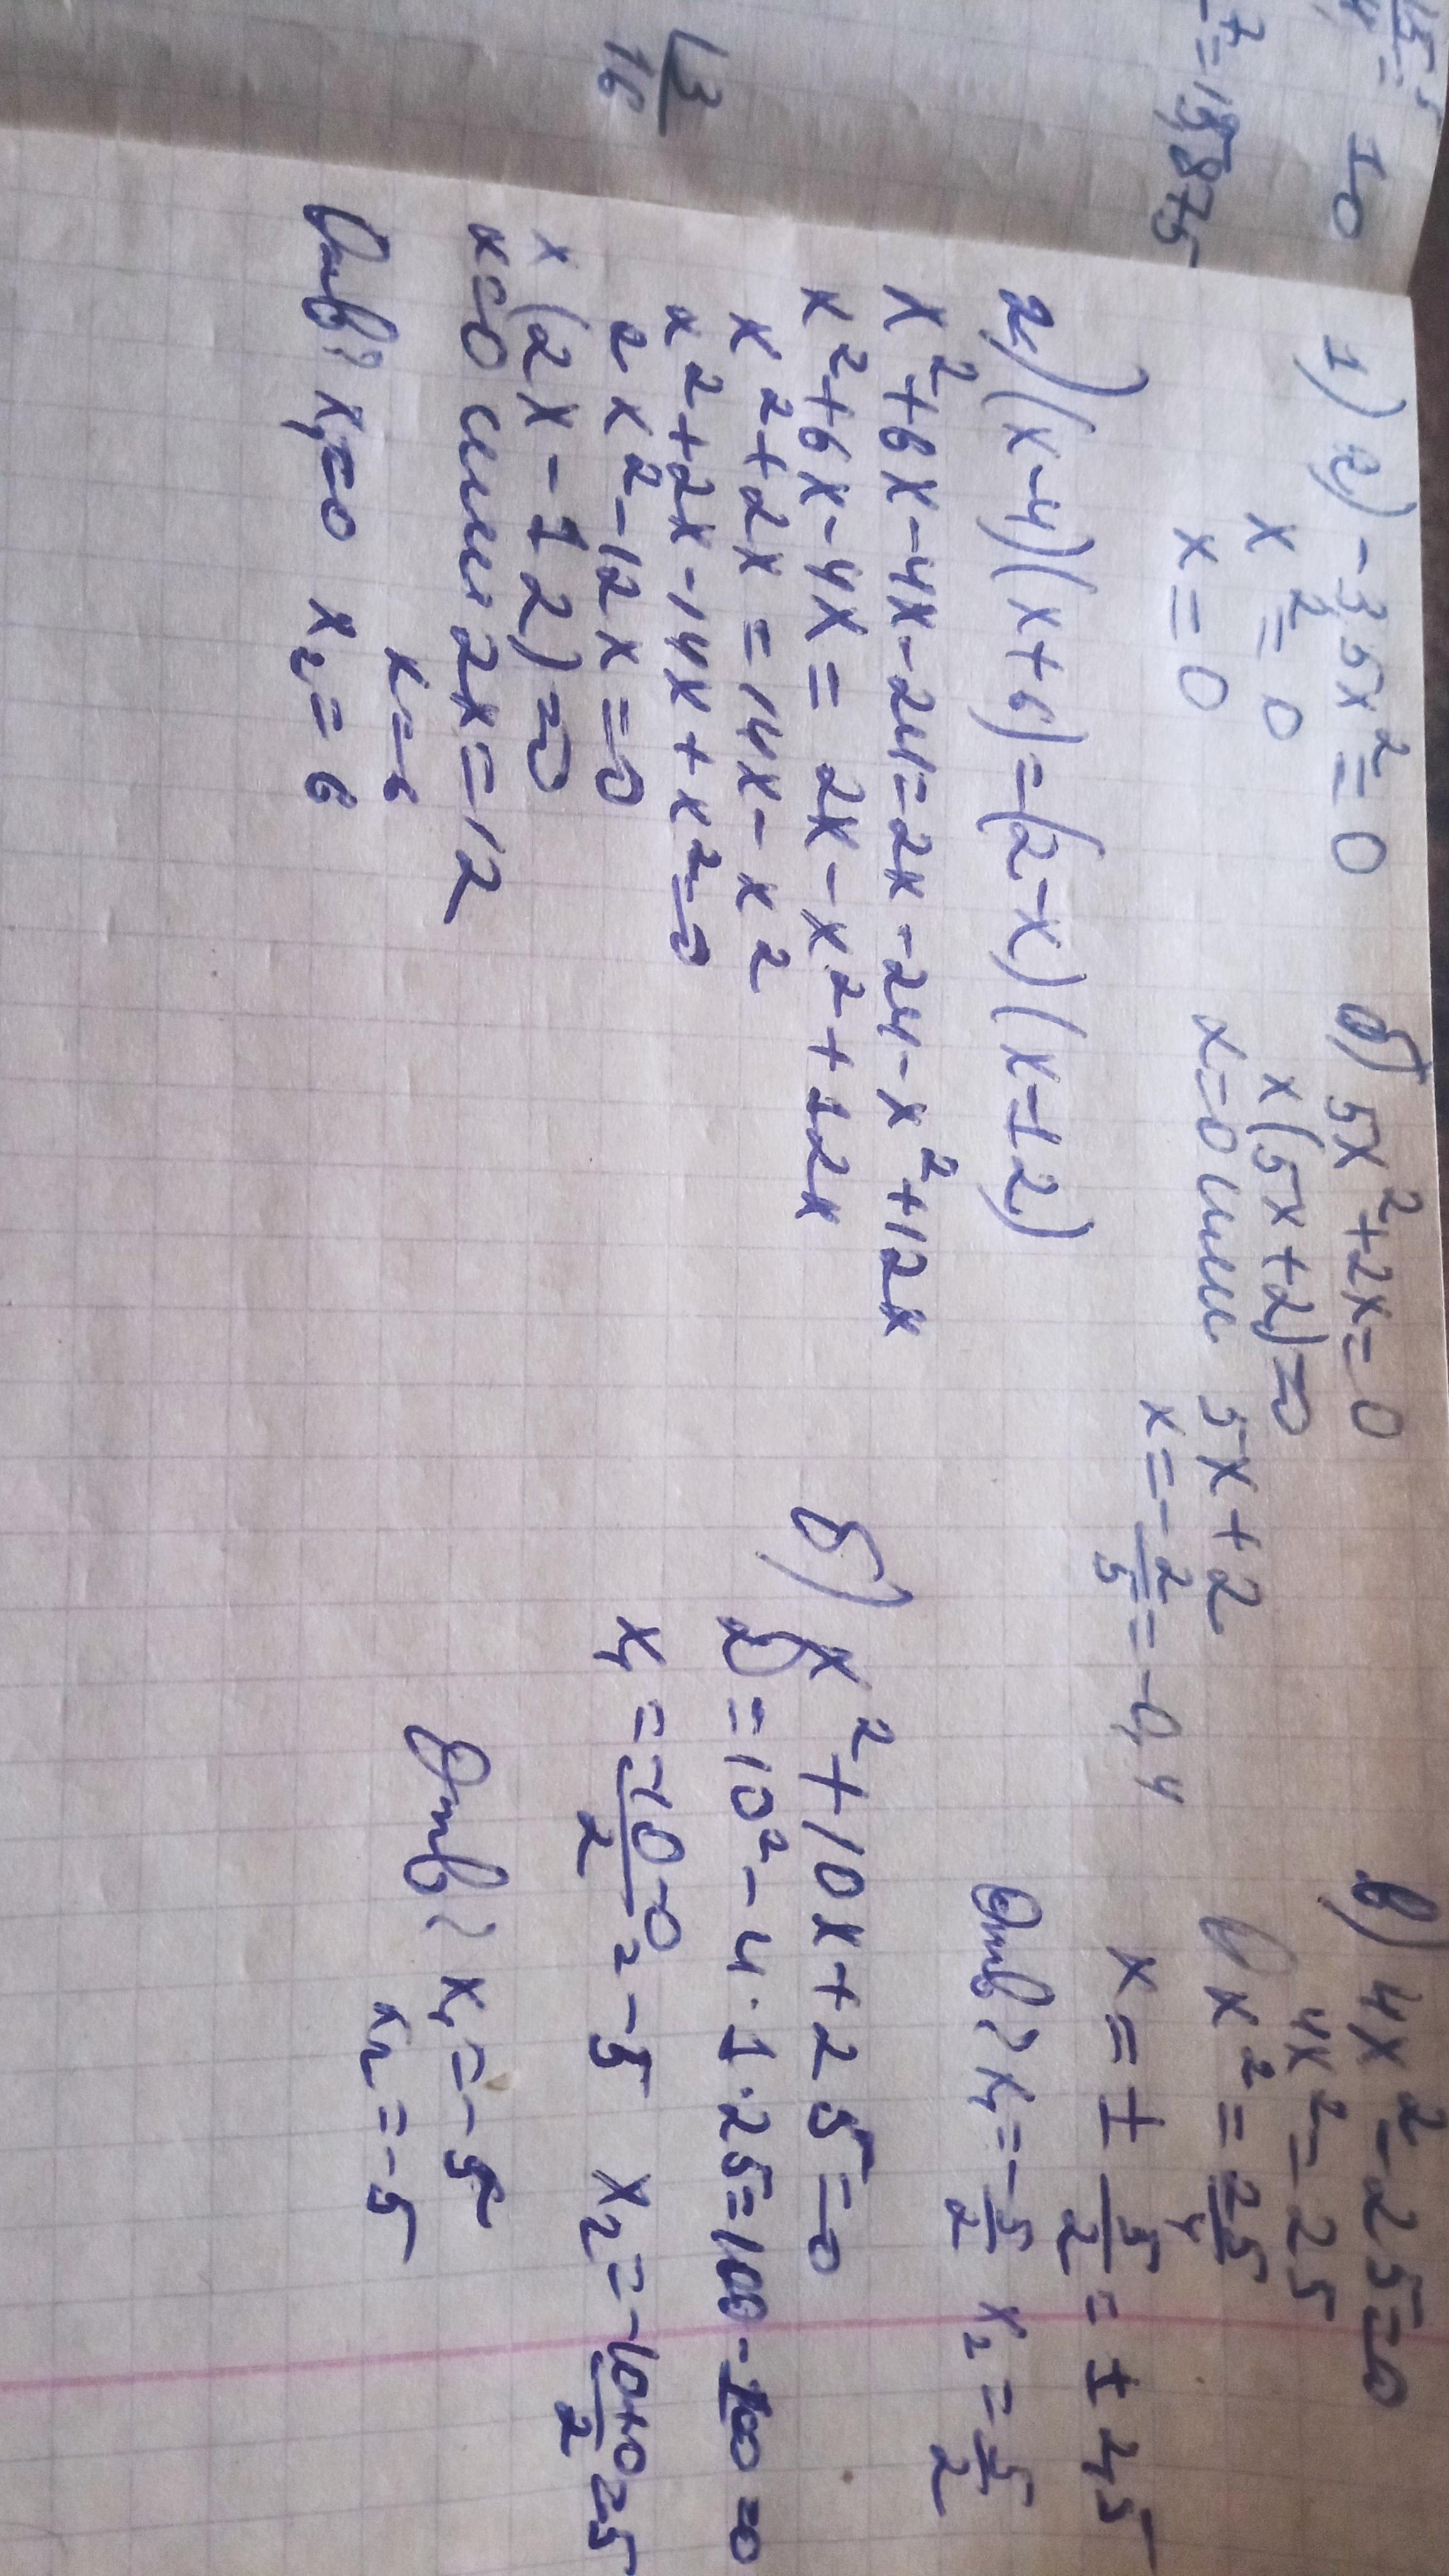 = 15,875
10
13
16
1) а) -3,5x² = 0
x² = 0
x = 0
б) 5x² + 2x = 0
x(5x + 2) = 0
x = 0 или 5x + 2
x = -2/5 = -0,4
в) 4x² - 25 = 0
4x² = 25
x² = 25/4
x = ± 5/2 = ± 2,5
Отв: x₁ = -5/2 x₂ = 5/2
2) (x-4)(x+6) = (2-x)(x-12)
x² + 6x - 4x - 24 = 2x - 24 - x² + 12x
x² + 6x - 4x = 2x - x² + 12x
x² + 2x = 14x - x²
x² + 2x - 14x + x² = 0
2x² - 12x = 0
x(2x - 12) = 0
x = 0 или 2x = 12
x = 6
Отв: x₁ = 0 x₂ = 6
б) x² + 10x + 25 = 0
D = 10² - 4 · 1 · 25 = 100 - 100 = 0
x₁ = -10-0/2 = -5 x₂ = -10+0/2 = -5
Отв: x₁ = -5
x₂ = -5